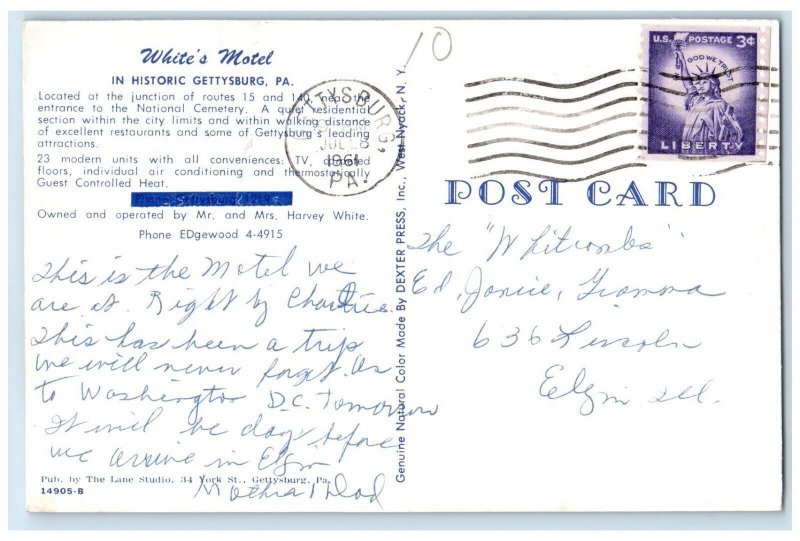 White's Motel
IN HISTORIC GETTYSBURG, PA.
Located at the junction of routes 15 and 140, near the
entrance to the National Cemetery. A quiet residential
section within the city limits and within walking distance
of excellent restaurants and some of Gettysburg's leading
attractions.
23 modern units with all conveniences: TV,
floors, individual air conditioning and thermostatically
Guest Controlled Heat.
Phone Gettysburg
Owned and operated by Mr. and Mrs. Harvey White.
Phone EDgewood 4-4915
This is the Motel we
are at. Right by
This has been a trip
we will never forget. On
to Washington D.C. Tomorrow
It will be days before
we arrive in Elgin
Mother & Dad
Pub. by The Lane Studio, 34 York St., Gettysburg, Pa.
14905-B
Genuine Natural Color Made By DEXTER PRESS, Inc. West Nyack, N. Y.
10
GETTYSBURG,
JUL 28
1961
PA.
U.S. POSTAGE 3¢
IN GOD WE TRUST
LIBERTY
POST CARD
The "Whitcombs"
Ed, Janice,
636 Lincoln
Elgin Ill.